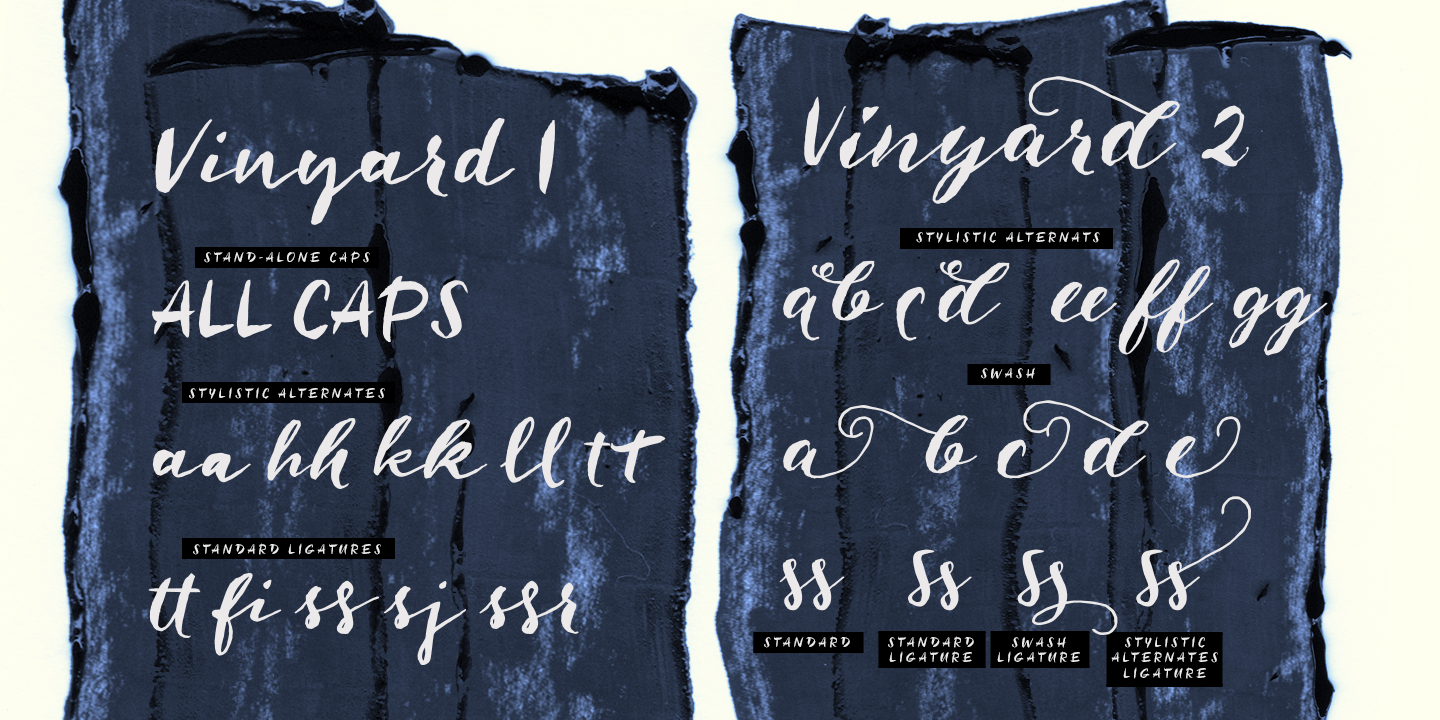 Vinyard 1
STAND-ALONE CAPS
ALL CAPS
STYLISTIC ALTERNATES
aa hh kk ll tt
STANDARD LIGATURES
tt fi ss sj ssr
Vinyard 2
STYLISTIC ALTERNATS
ab cd ee ff gg
SWASH
a b c d e
ss ss ss ss
STANDARD
STANDARD
LIGATURE
SWASH
LIGATURE
STYLISTIC
ALTERNATES
LIGATURE